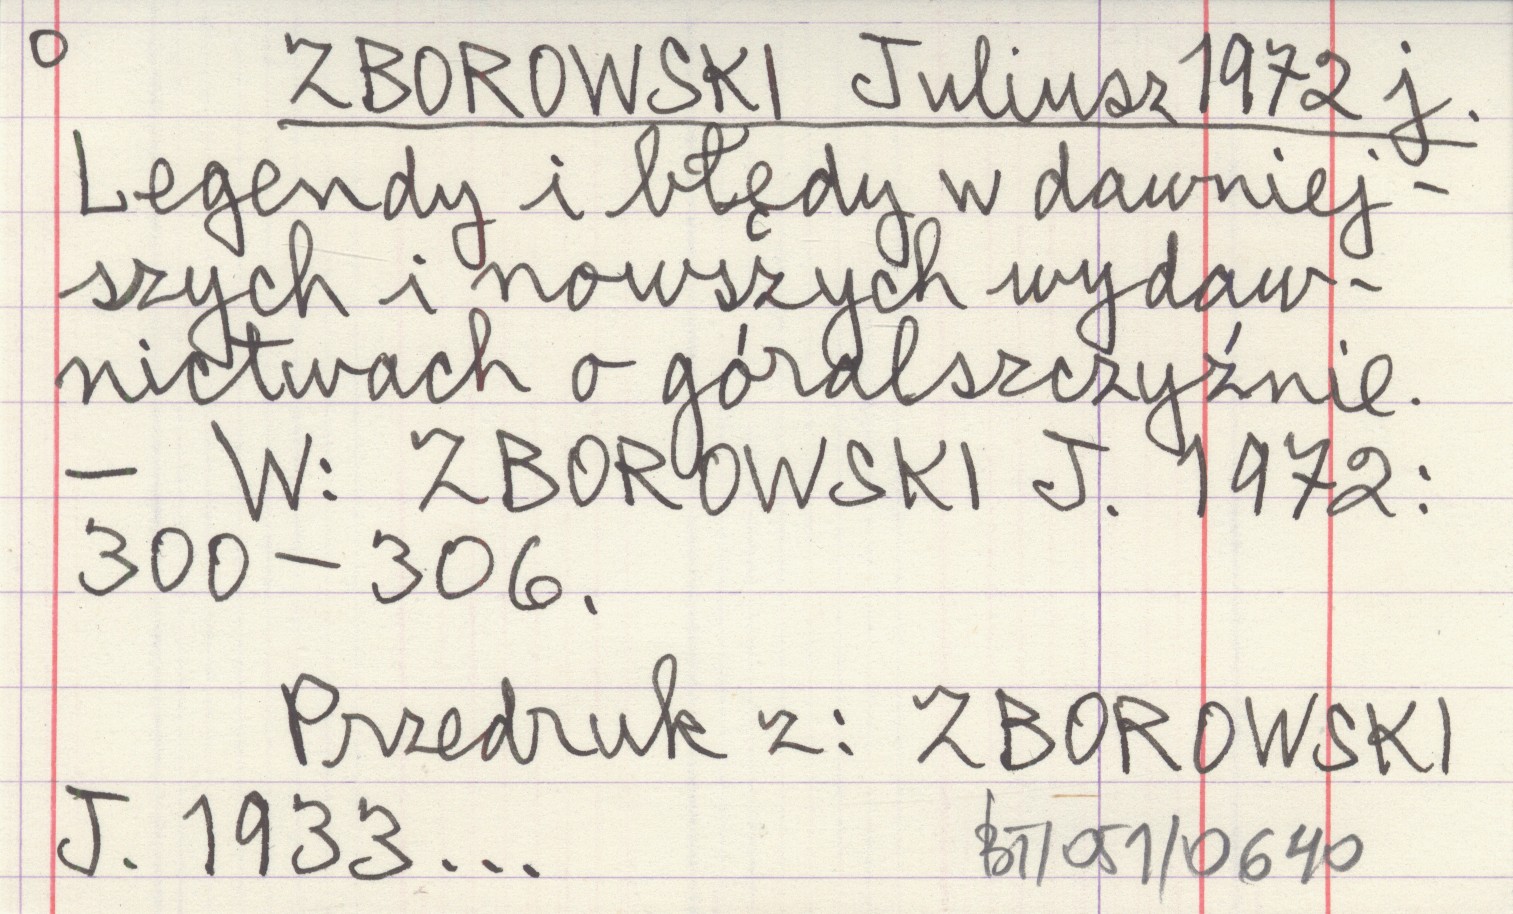 o ZBOROWSKI Juliusz 1972 j.
Legendy i błędy w dawniej-
szych i nowszych wydaw-
nictwach o góralszczyźnie.
— W: ZBOROWSKI J. 1972:
300-306.
Przedruk z: ZBOROWSKI
J. 1933...
BT/051/0640